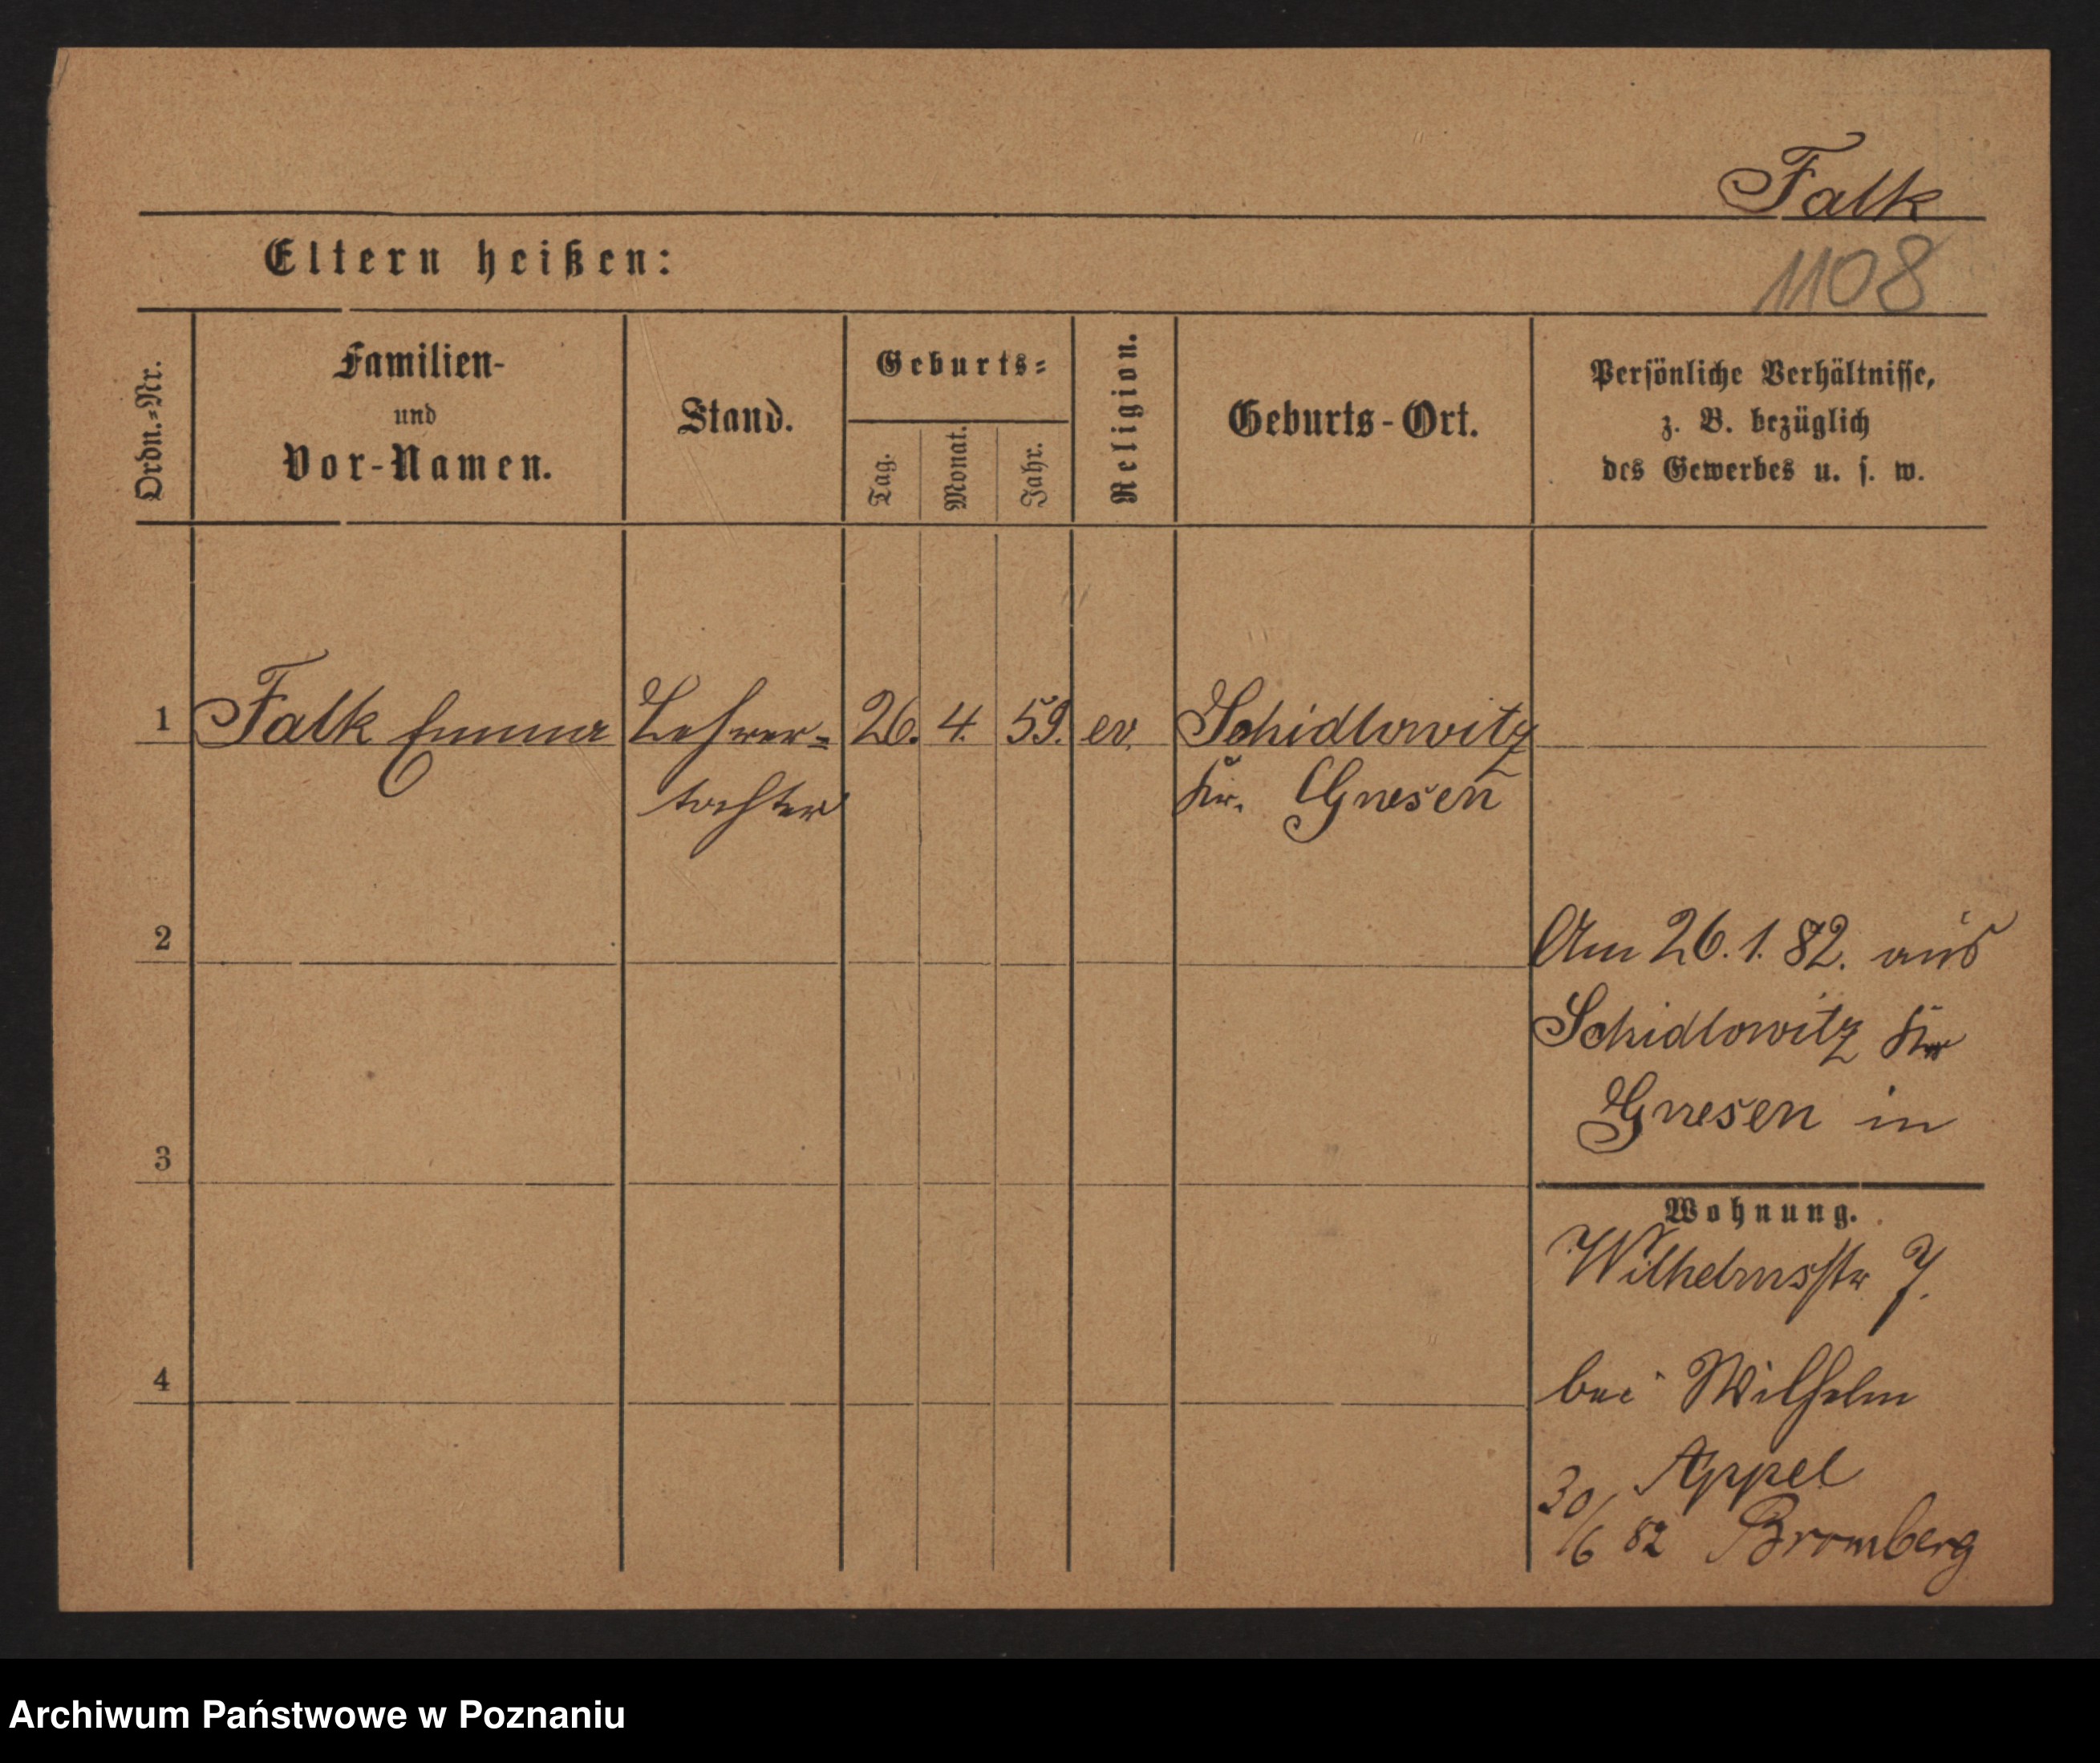 Falk
Eltern heißen:
1108
Ordn.=Nr.
Familien-
und
Vor-Namen.
Stand.
Geburts=
Tag.
Monat.
Jahr.
Religion.
Geburts-Ort.
Persönliche Verhältnisse,
z. B. bezüglich
des Gewerbes u. s. w.
1 Falk Emma Lehrer= 26. 4. 59. ev. Schidlowitz
tochter Kr. Gnesen
2
Am 26. 1. 82. aus
Schidlowitz Kr
Gnesen in
3
Wohnung.
Wilhelmsstr 7.
4
bei Wilhelm
Appel
30/6 82 Bromberg
Archiwum Państwowe w Poznaniu